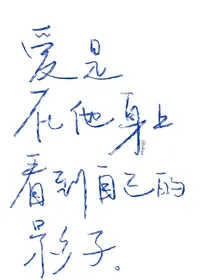 爱是
在他身上
看到自己的
影子。